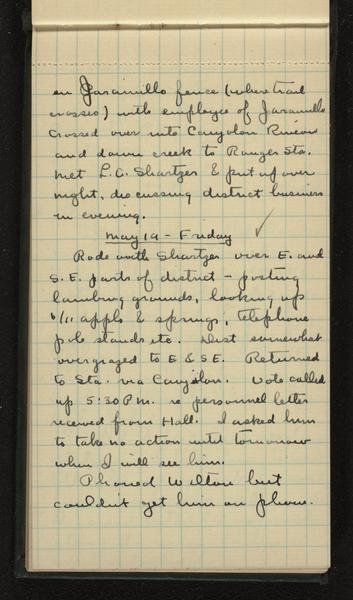 on Jaramillo fence (where trail
crosses) with employee of Jaramillo
Crossed over into Canjolon Rincon
and down creek to Ranger Sta.
Met L.C. Shartzer & put up over
night, discussing district business
in evening.
May 19 - Friday
Rode with Shartzer over E. and
S.E. parts of district - posting
lambing grounds, looking up
6/11 appls & springs, telephone
pole stands etc. Dist somewhat
overgrazed to E & SE. Returned
to Sta. via Canjilon. called
up 5:30 P.M. re personnel letter
received from Hall. I asked him
to take no action until tomorrow
when I will see him.
Phoned Wilton but
couldn't get him on phone.